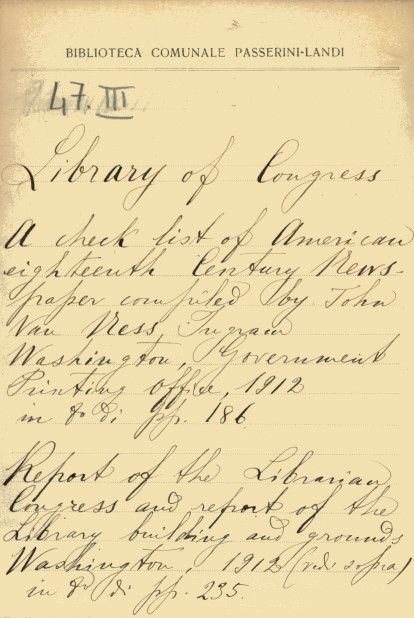 BIBLIOTECA COMUNALE PASSERINI-LANDI
47. III
Library of Congress
A check list of American
eighteenth Century News-
paper compiled by John
Van Ness, Ingram
Washington, Government
Printing Office, 1912
in 8º di pp. 186
Report of the Librarian
Congress and report of the
Library building and grounds
Washington, 1912 (vedi sopra)
in 8º di pp. 235.